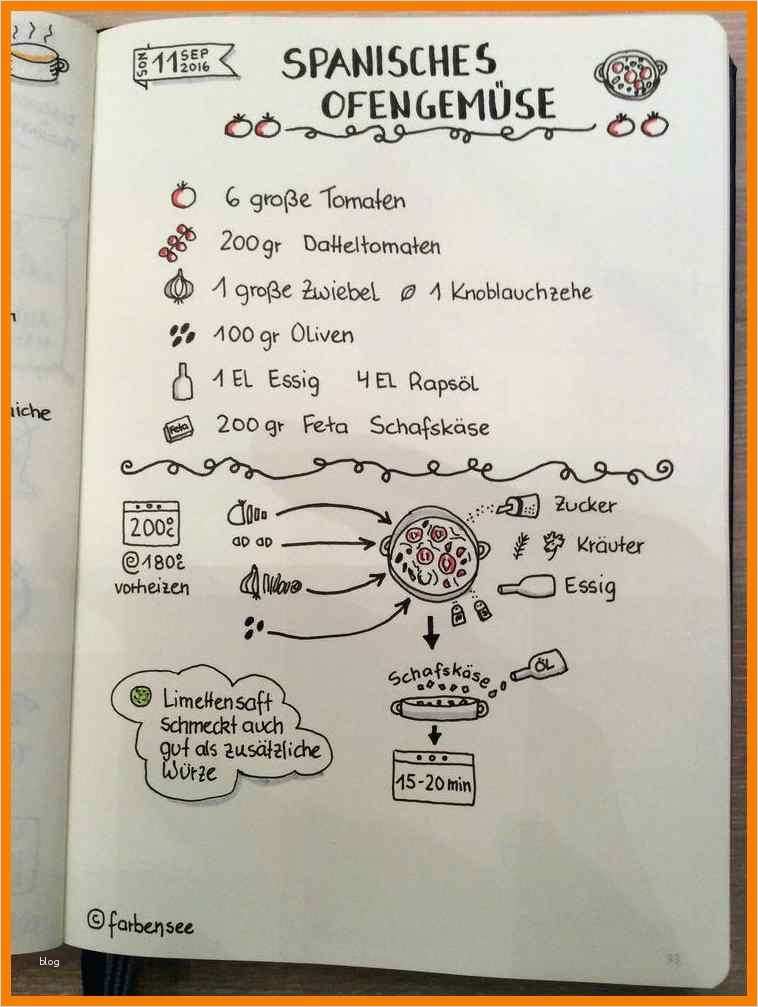 SON 11 SEP 2016
SPANISCHES
OFENGEMÜSE
6 große Tomaten
200gr Datteltomaten
1 große Zwiebel 1 Knoblauchzehe
100 gr Oliven
1 EL Essig 4 EL Rapsöl
Feta 200 gr Feta Schafskäse
200°C
@180°C
vorheizen
Zucker
Kräuter
Essig
Schafskäse
ÖL
15-20 min
Limettensaft
schmeckt auch
gut als zusätzliche
Würze
© farbensee
blog
33